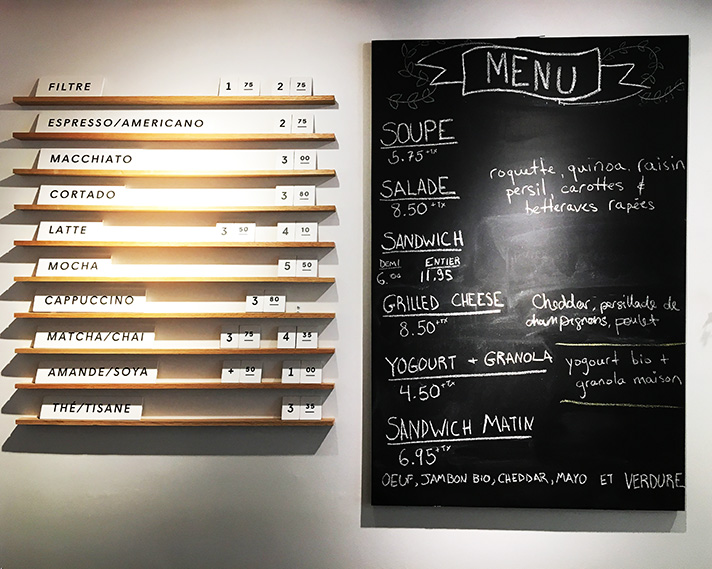 FILTRE 1 75 2 75
ESPRESSO/AMERICANO 2 75
MACCHIATO 3 00
CORTADO 3 80
LATTE 3 50 4 10
MOCHA 5 50
CAPPUCCINO 3 80
MATCHA/CHAI 3 75 4 35
AMANDE/SOYA + 50 1 00
THÉ/TISANE 3 35
MENU
SOUPE
5.75+tx
SALADE
8.50+tx
roquette, quinoa, raisin
persil, carottes &
betteraves rapées
SANDWICH
DEMI ENTIER
6.00 11.95
GRILLED CHEESE
8.50+tx
Cheddar, persillade de
champignons, poulet
YOGOURT + GRANOLA
4.50+tx
yogourt bio +
granola maison
SANDWICH MATIN
6.95+tx
OEUF, JAMBON BIO, CHEDDAR, MAYO ET VERDURE